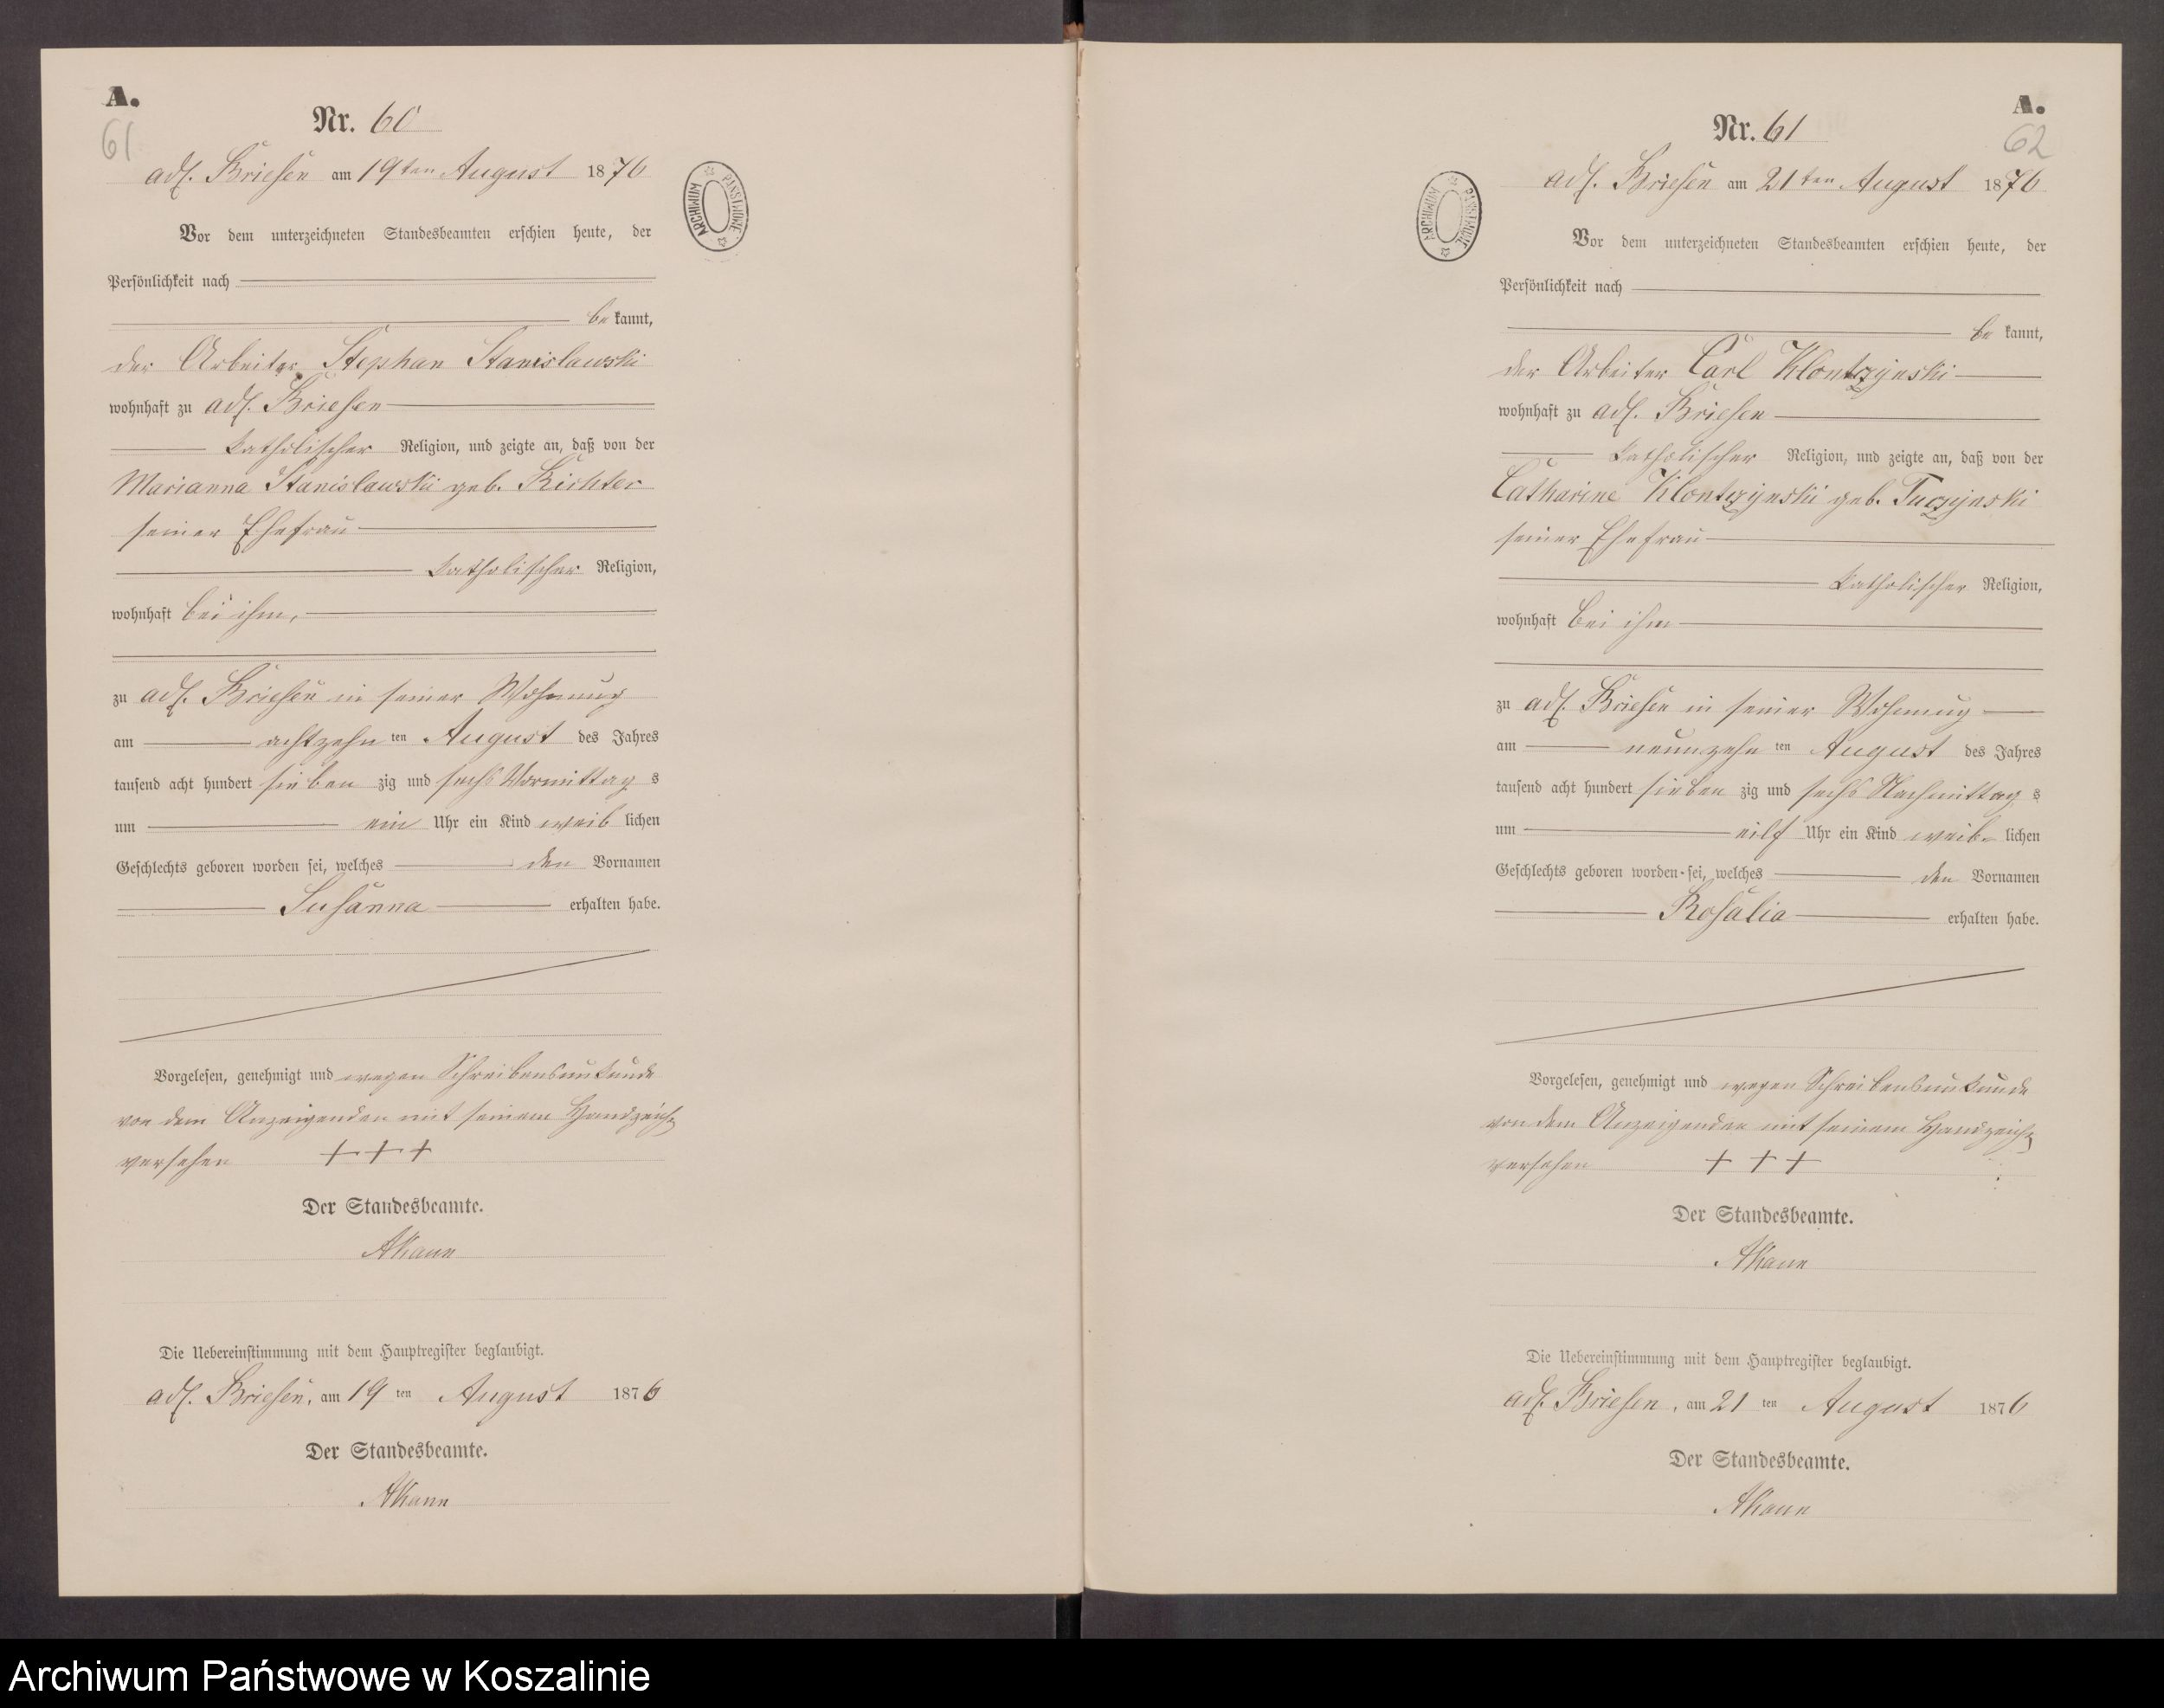 A.
61
Nr. 60
adl. Briesen am 19ten August 1876
ARCHIWUM PAŃSTWOWE
Vor dem unterzeichneten Standesbeamten erschien heute, der
Persönlichkeit nach
be kannt,
der Arbeiter Stephan Stanislawski
wohnhaft zu adl. Briesen
katholischer Religion, und zeigte an, daß von der
Marianna Stanislawski geb. Richter
seiner Ehefrau
katholischer Religion,
wohnhaft bei ihm,
zu adl. Briesen in seiner Wohnung
am achtzehn ten August des Jahres
tausend acht hundert sieben zig und sechs Vormittag s
um ein Uhr ein Kind weib lichen
Geschlechts geboren worden sei, welches den Vornamen
Susanna erhalten habe.
Vorgelesen, genehmigt und wegen Schreibensunkunde
von dem Anzeigenden mit seinem Handzeich
versehen + + +
Der Standesbeamte.
Die Uebereinstimmung mit dem Hauptregister beglaubigt.
adl. Briesen, am 19 ten August 1876
Der Standesbeamte.
A.
62
Nr. 61
adl. Briesen am 21ten August 1876
ARCHIWUM PAŃSTWOWE
Vor dem unterzeichneten Standesbeamten erschien heute, der
Persönlichkeit nach
be kannt,
der Arbeiter Carl Klontzynski
wohnhaft zu adl. Briesen
katholischer Religion, und zeigte an, daß von der
Catharine Klontzynski geb. Tuczynski
seiner Ehefrau
katholischer Religion,
wohnhaft bei ihm
zu adl. Briesen in seiner Wohnung
am neunzehn ten August des Jahres
tausend acht hundert sieben zig und sechs Nachmittag s
um eilf Uhr ein Kind weib- lichen
Geschlechts geboren worden sei, welches den Vornamen
Rosalia erhalten habe.
Vorgelesen, genehmigt und wegen Schreibensunkunde
von dem Anzeigenden mit seinem Handzeich
versehen + + +
Der Standesbeamte.
Die Uebereinstimmung mit dem Hauptregister beglaubigt.
adl. Briesen, am 21 ten August 1876
Der Standesbeamte.
Archiwum Państwowe w Koszalinie